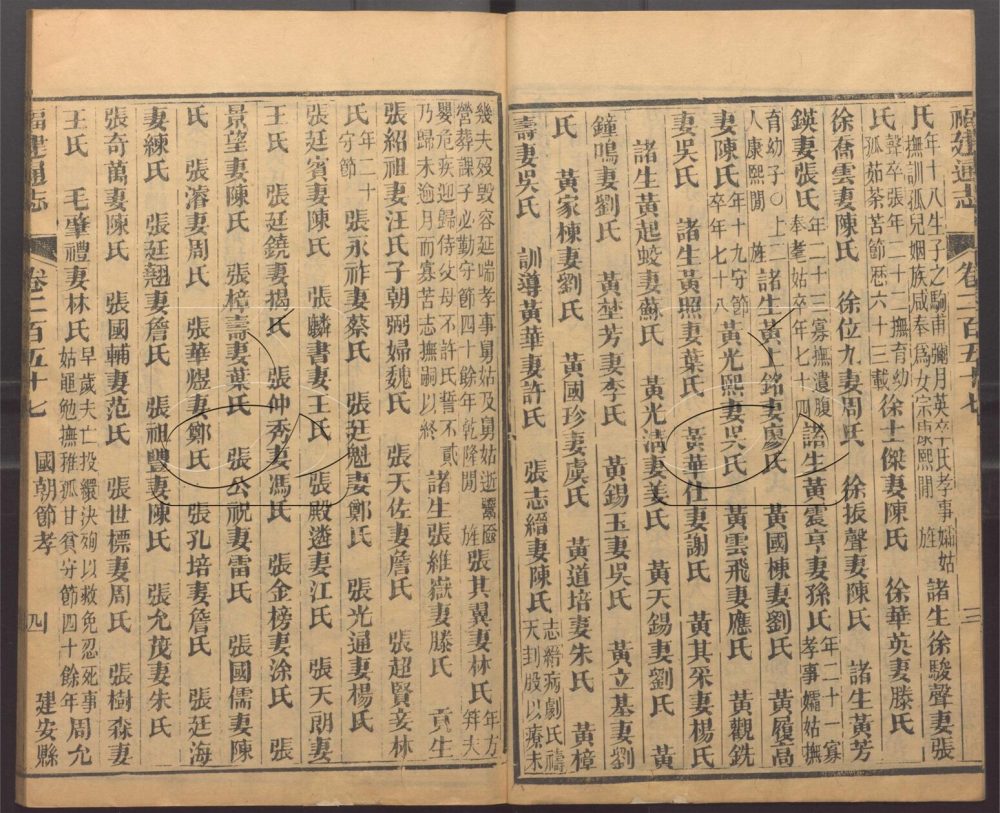 福建通志 卷二百五十七 三
氏年十八生子之駒甫彌月英卒氏孝事孀姑
撫訓孤兒姻族咸奉爲女宗康熙間旌 諸生徐駿聲妻張
氏聲卒張年二十二撫育幼
孤茹荼苦節歷六十三載 徐士傑妻陳氏 徐華英妻滕氏
徐喬雲妻陳氏 徐位九妻周氏 徐振聲妻陳氏 諸生黃芳
鍈妻張氏年二十三寡撫遺腹
奉耄姑卒年七十四 諸生黃震亨妻孫氏年二十一寡
孝事孀姑撫
育幼子○上二
人康熙間旌 諸生黃士銘妻廖氏 黃國棟妻劉氏 黃履高
妻陳氏年十九守節
卒年七十八 黃光熙妻吳氏 黃雲飛妻應氏 黃觀銑
妻吳氏 諸生黃照妻葉氏 黃華仕妻謝氏 黃其采妻楊氏
諸生黃起蛟妻蘇氏 黃光溝妻姜氏 黃天錫妻劉氏 黃
鐘鳴妻劉氏 黃埜芳妻李氏 黃錫玉妻吳氏 黃立基妻劉
氏 黃家棟妻劉氏 黃國珍妻虞氏 黃道培妻朱氏 黃樟
壽妻吳氏 訓導黃華妻許氏 張志縉妻陳氏志縉病劇氏禱
天刲股以療未
幾夫歿毀容延喘孝事舅姑及舅姑逝鬻產
營葬課子必勤守節四十餘年乾隆間旌 張其翼妻林氏年方
笄夫
嬰危疾迎歸侍父母不許氏誓不貳
乃歸未逾月而寡苦志撫嗣以終 諸生張維嶽妻滕氏 貢生
張紹祖妻汪氏子朝弼婦魏氏 張天佐妻詹氏 張超賢妾林
氏年二十
守節 張永祚妻蔡氏 張廷魁妻鄭氏 張光通妻楊氏
張廷賓妻陳氏 張麟書妻王氏 張殿遴妻江氏 張天朗妻
王氏 張廷鐃妻揭氏 張仲秀妻馮氏 張金榜妻涂氏 張
景望妻陳氏 張樟壽妻葉氏 張公祝妻雷氏 張國儒妻陳
氏 張濬妻周氏 張華煜妻鄭氏 張孔培妻詹氏 張廷海
妻練氏 張廷翹妻詹氏 張祖豐妻陳氏 張允茂妻朱氏
張奇萬妻陳氏 張國輔妻范氏 張世標妻周氏 張樹森妻
王氏 毛肇禮妻林氏早歲夫亡投繯決殉以救免忍死事
姑黽勉撫稚孤甘貧守節四十餘年 周允
福建通志 卷二百五十七 國朝節孝 四 建安縣